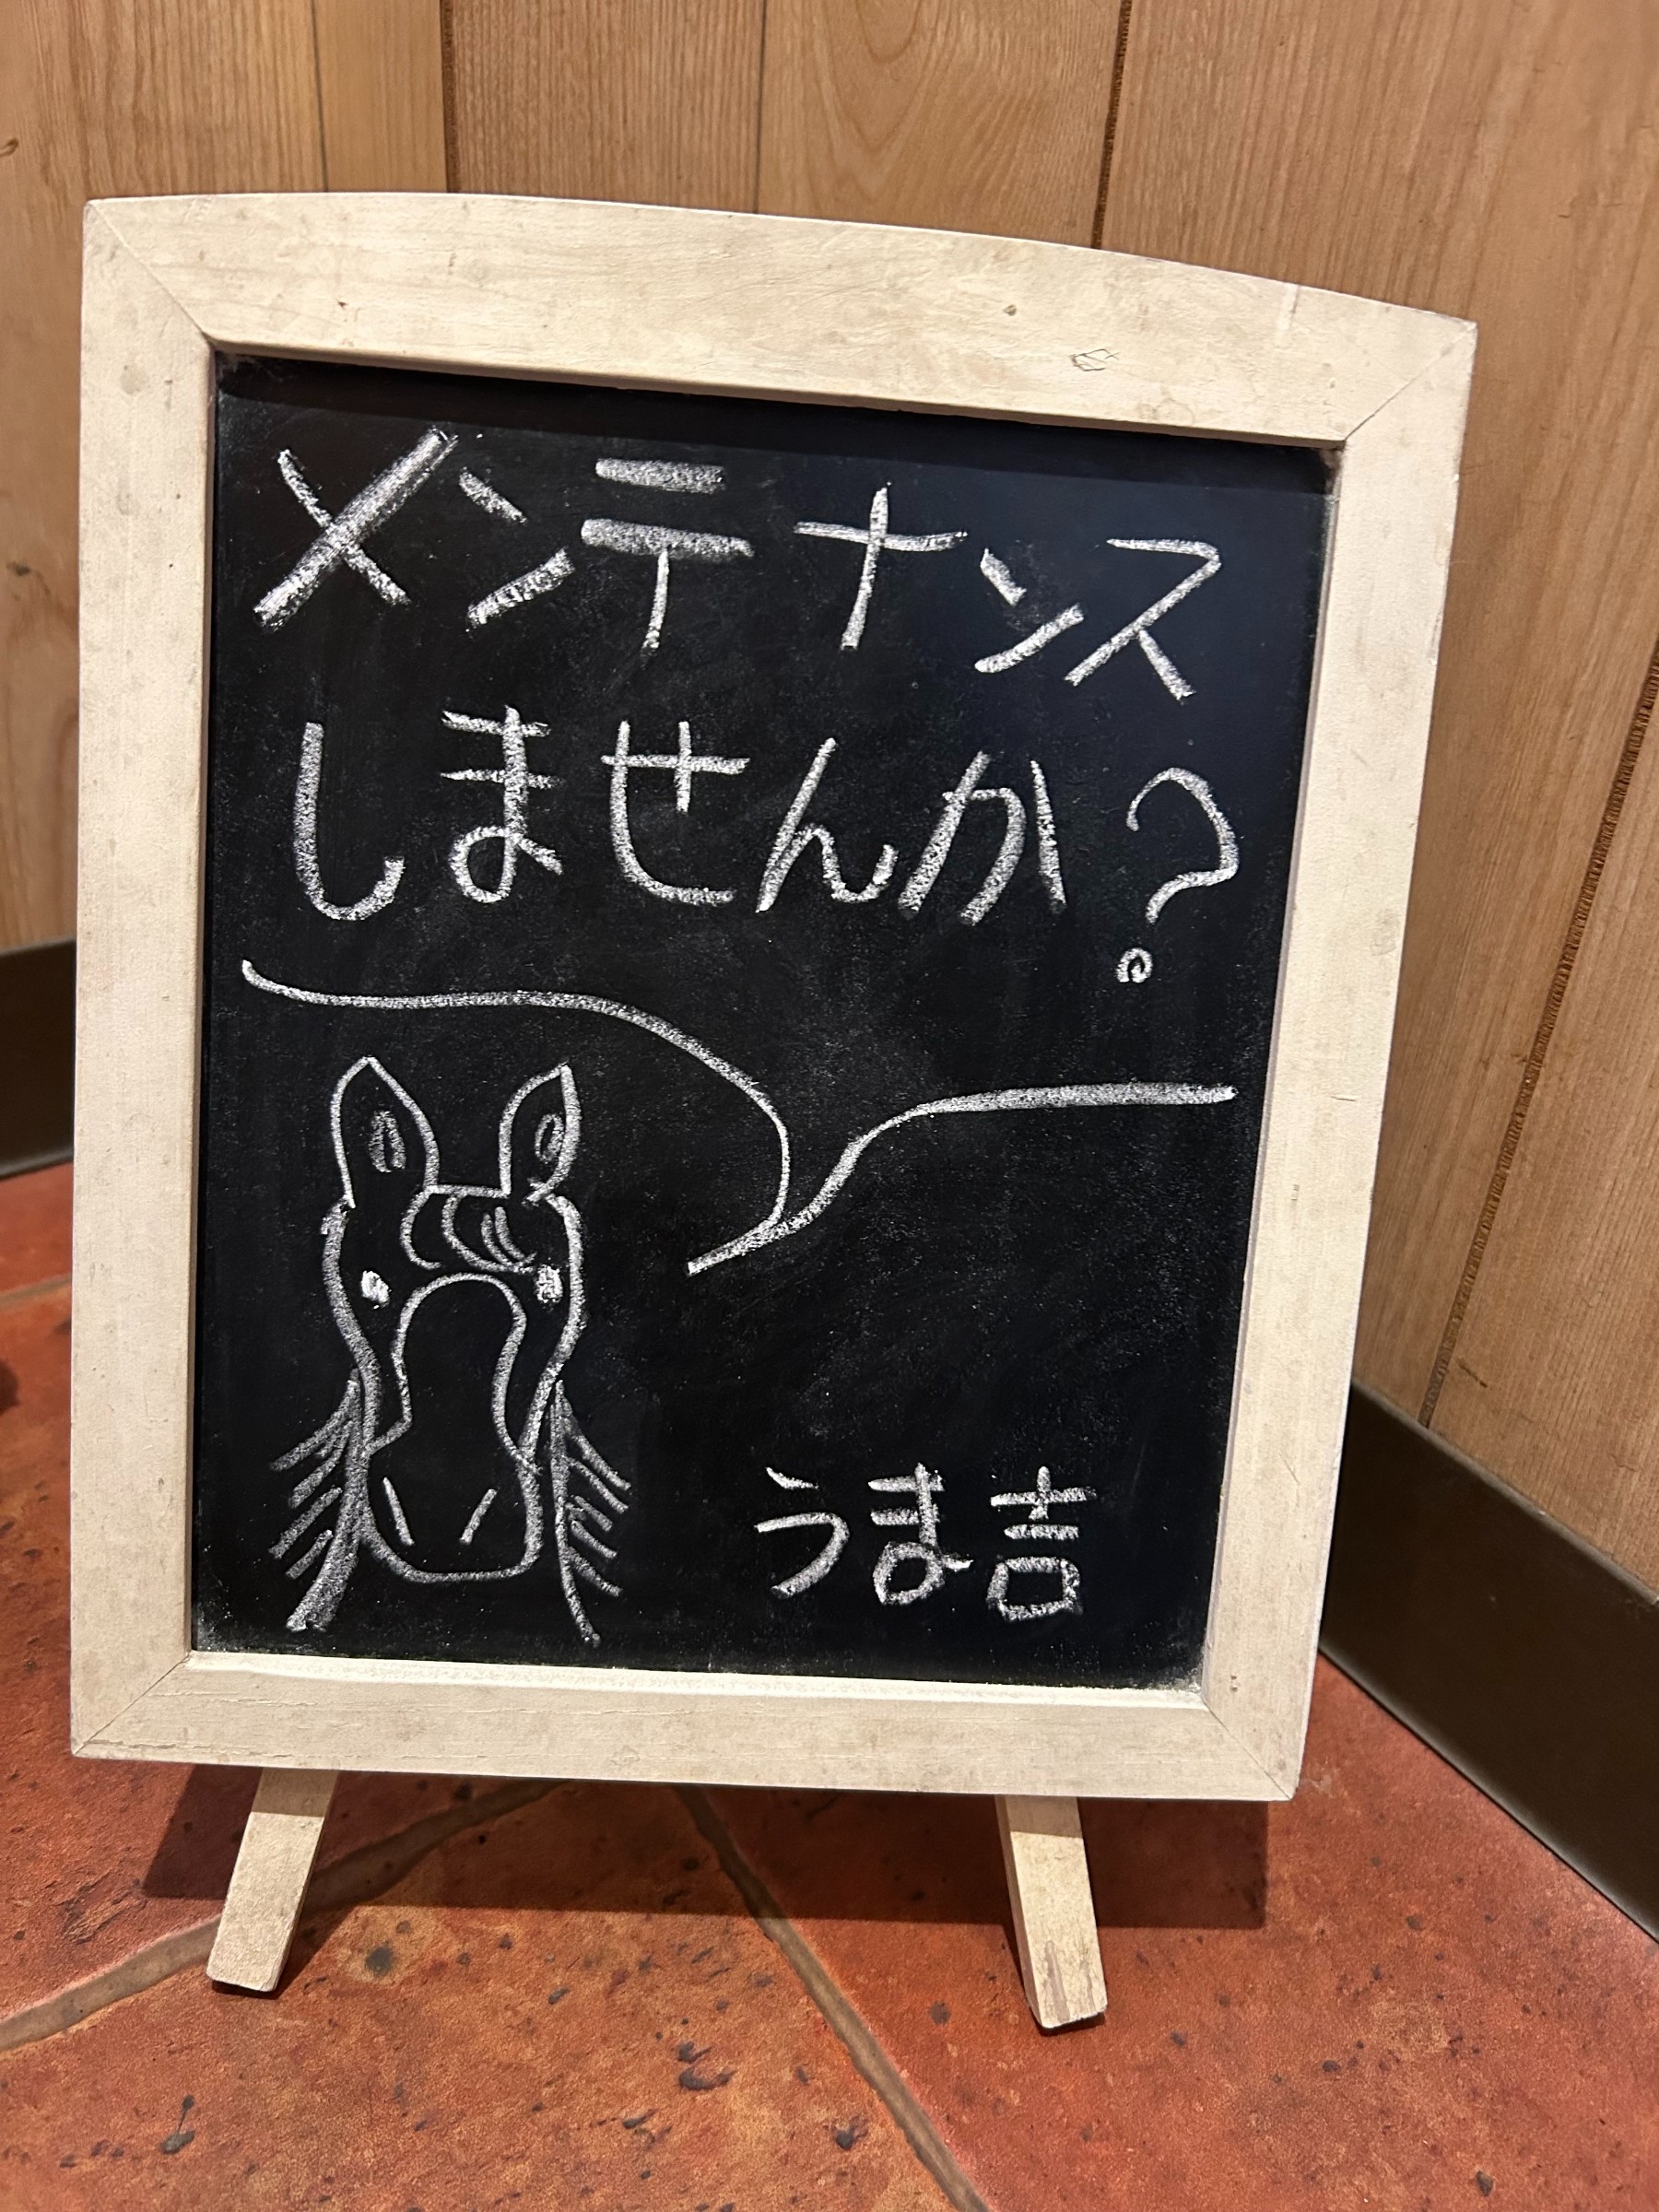 メンテナンス
しませんか?
うま吉